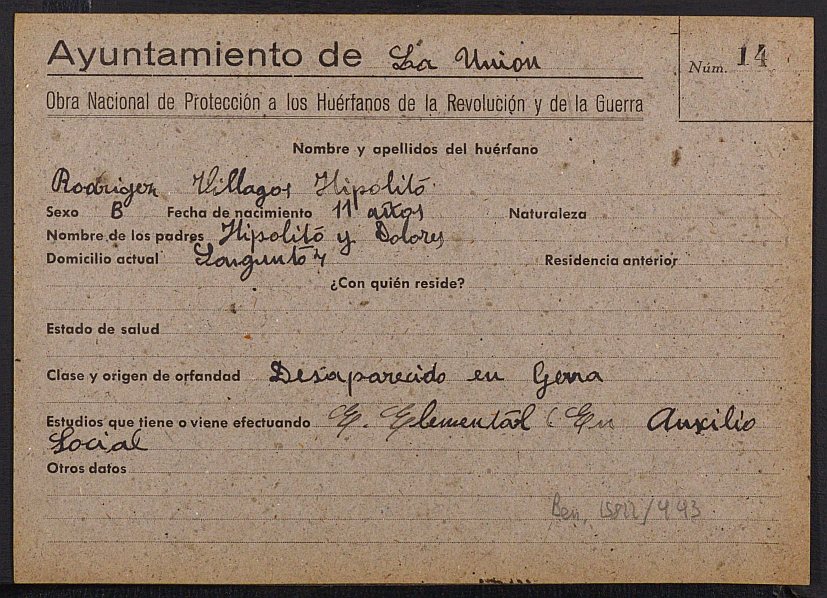 Ayuntamiento de La Union
Núm. 14
Obra Nacional de Protección a los Huérfanos de la Revolución y de la Guerra
Nombre y apellidos del huérfano
Rodrigez Villagos Hipolitó
Sexo B Fecha de nacimiento 11 años Naturaleza
Nombre de los padres Hipolitó y Dolores
Domicilio actual Residencia anterior
¿Con quién reside?
Estado de salud
Clase y origen de orfandad Desaparecido en Gerra
Estudios que tiene o viene efectuando E. Elementál (En Auxilio
Social
Otros datos
Ben,